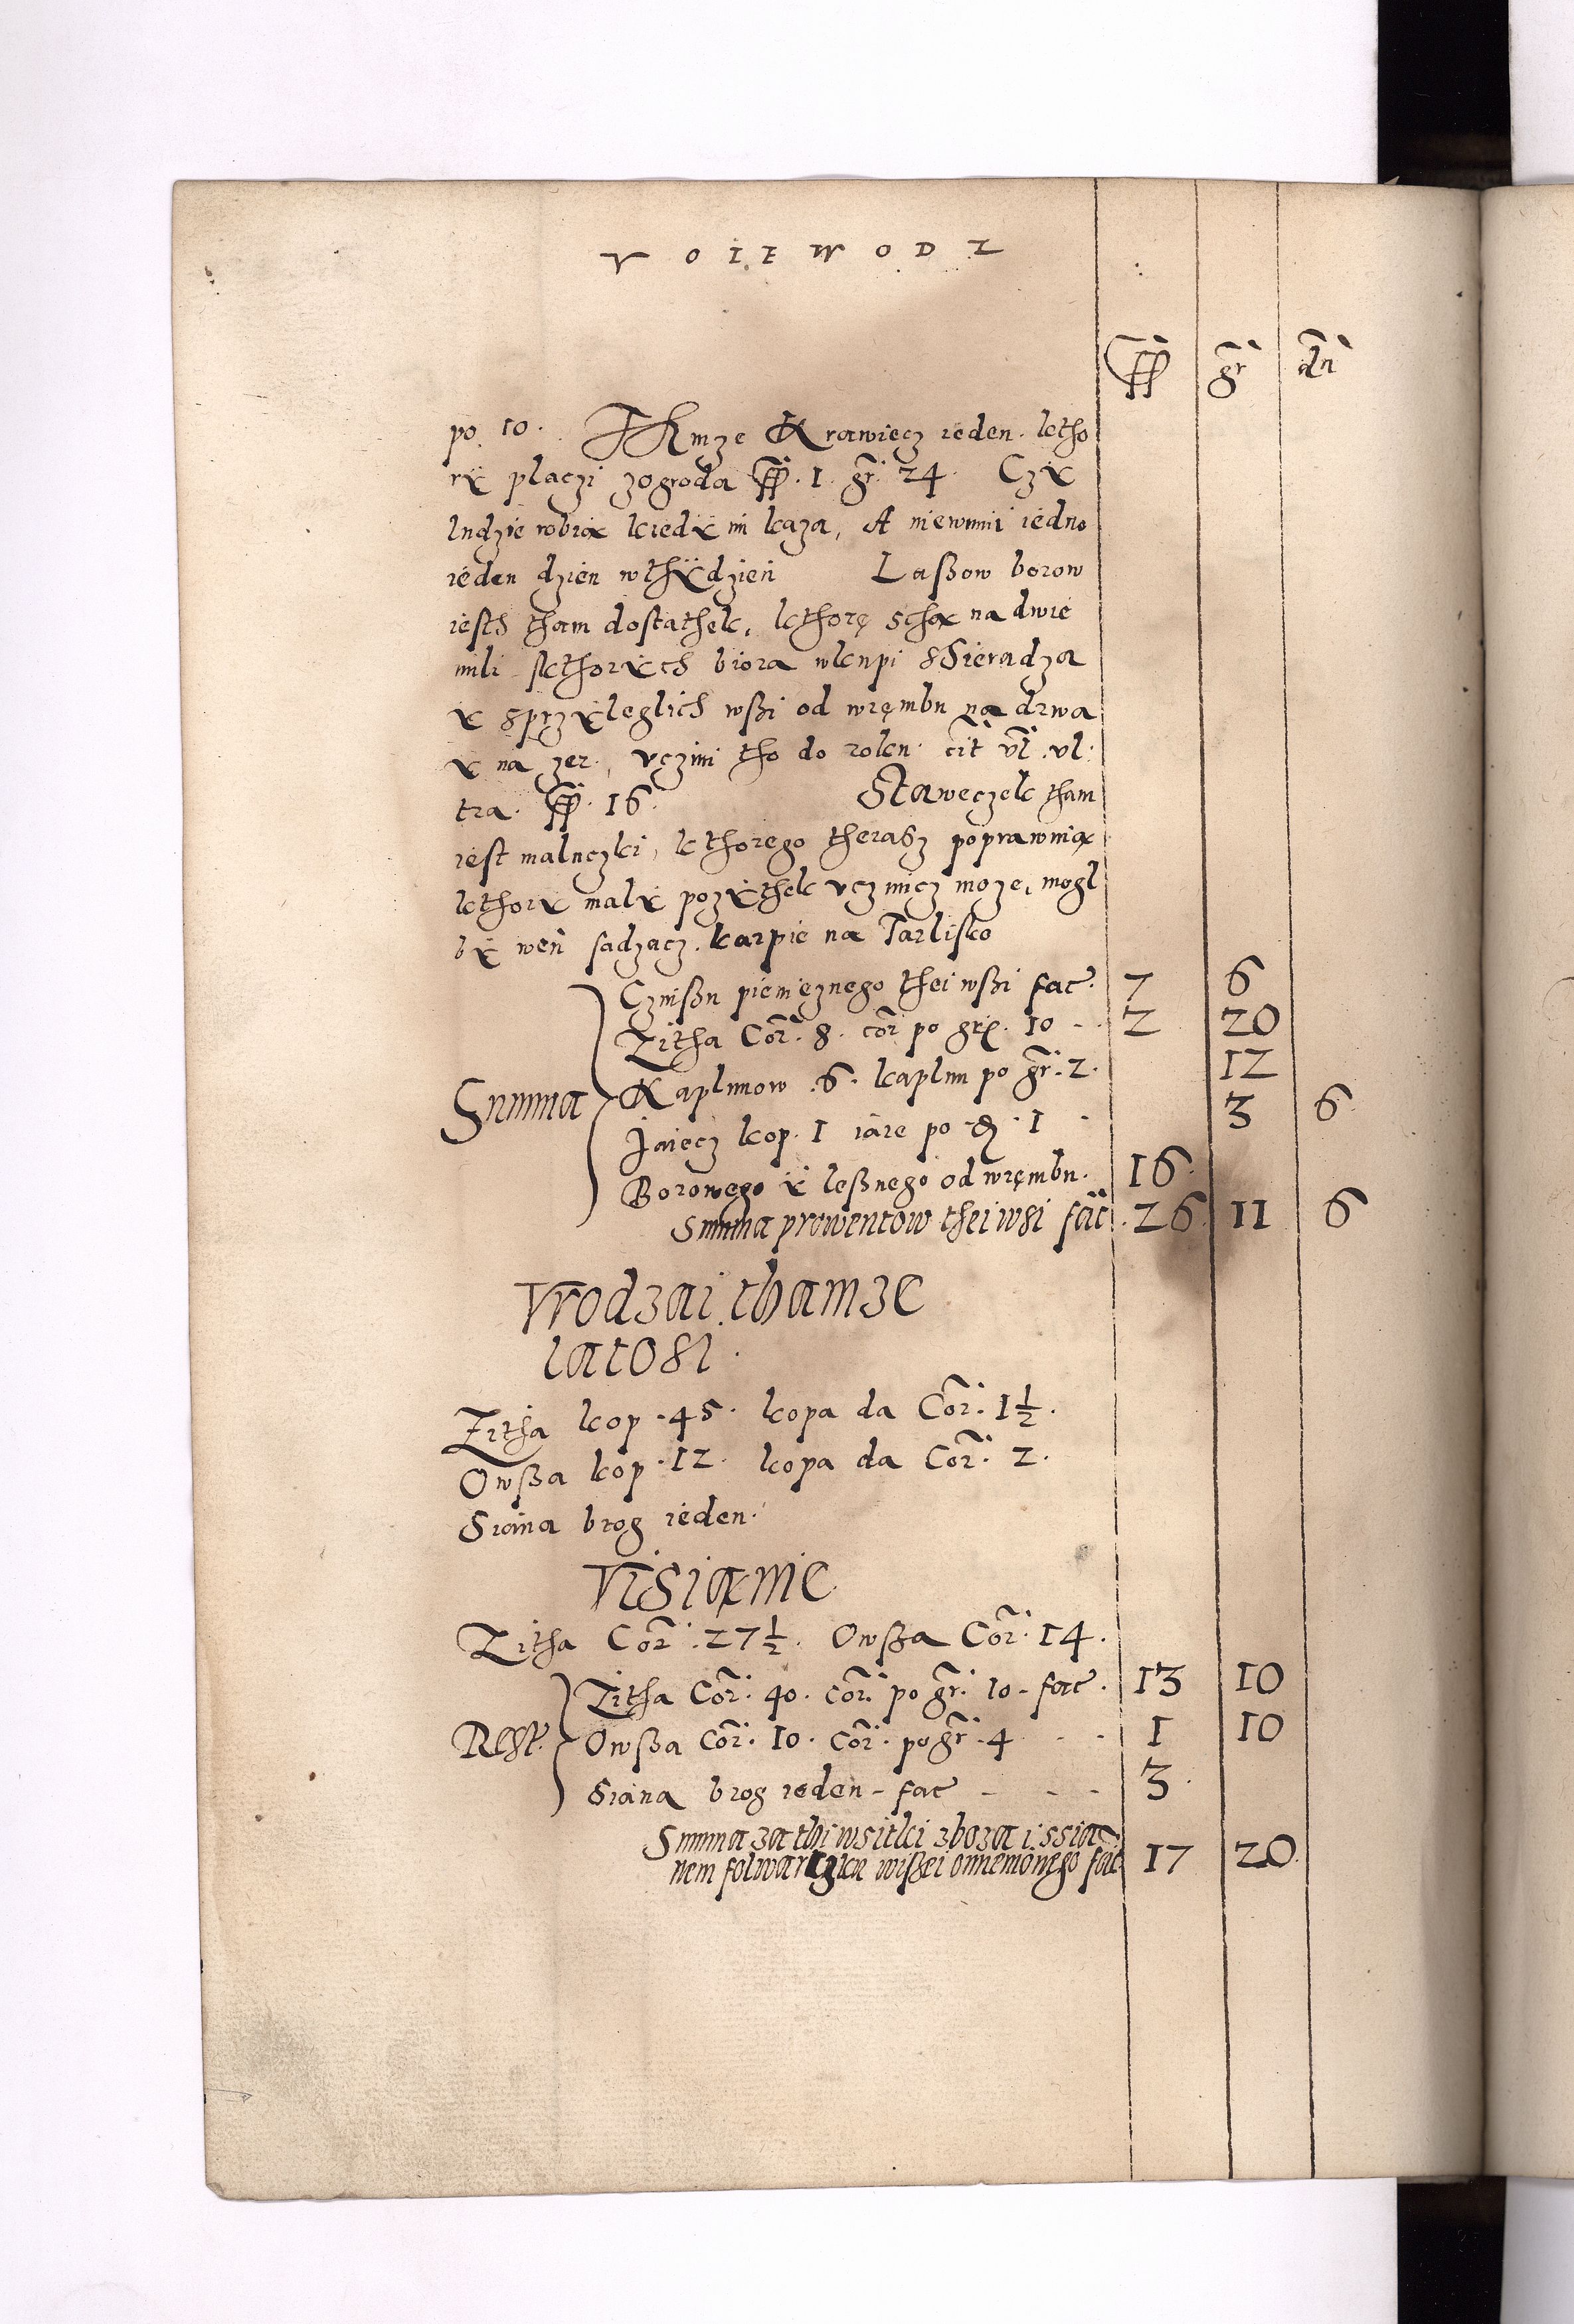 VOIEWODZ
ff gr dn
po 10. Thmze Krawiecz ieden. ktho
ry placzi zogroda ff. 1 gr. 24. Czy
ludzie robią kiedy im kaza, A niewinni iedno
ieden dzien wthydzien Laßow borow
iesth tham dostathek, kthorę scha na dwie
mili skthorych biora wkupi S Sieradza
y sprzyleglich wßi od wrębu na drwa
y na zer, vczini tho do roku cit vl. vl.
tra. ff. 16. Staweczek tham
iest maluczki, kthorego therasz poprawuią
kthory maly pozythek vczinicz moze, mogl
by weń sadzacz karpie na Tarlisko
Czinßu pienieznego thei wßi fac. 7 6
Zitha Cor. 8. cor po gr. 10 - 2 20
Summa Kaplunow .6. kaplun po gr. 2. 12
Jaiecz kop. 1 iaie po d. 1 3 6
Borowego y leßnego od wrębu. 16
Summa prowentow thei wsi fac. 26 11 6
Vrodzai thamze
latosi.
Zitha kop .45. kopa da Cor. 1½.
Owßa kop .12. kopa da Cor. 2.
Siana brog ieden.
Visianie
Zitha Cor .27½. Owßa Cor. 14.
Zitha Cor. 40. cor. po gr. 10 - fac. 13 10
Rest. Owßa Cor. 10. Cor. po gr. 4 - - 1 10
Siana brog ieden - fac - - - 3
Summa za thi wsitki zboza i ssia
nem folwarczku wißei omienionego fac 17 20